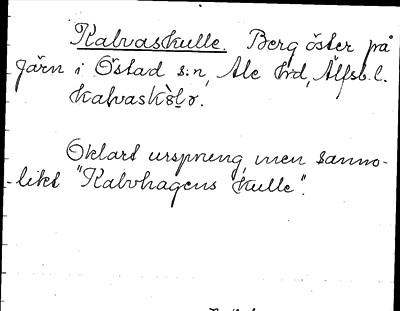 Kalvaskulle. Berg öster på
Järn i Östad s:n, Ale hd, Älfsb. l.
kalvaskòlɷ.
Oklart ursprung, men sanno-
likt "Kalvhagens kulle".